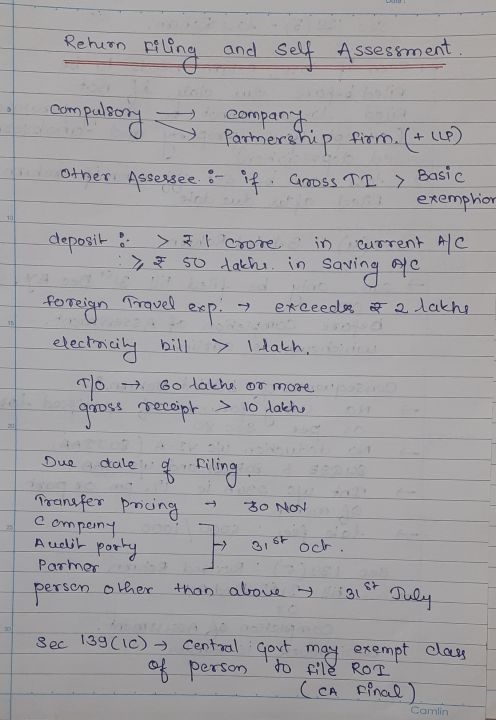 Return Filing and Self Assessment.
Compulsory → company
→ Partnership firm. (+ LLP)
Other Assessee :- if Gross TI > Basic
exemption
deposit :- > ₹ 1 crore in current A/C
: ≥ ₹ 50 lakhs in Saving A/C
foreign Travel exp. → exceeds ₹ 2 lakhs
electricity bill > 1 lakh.
T/O → 60 lakhs or more
gross receipt > 10 lakhs
Due date of Filing.
Transfer pricing → 30 NOV
Company
Audit party → 31st Oct.
Partner
person other than above → 31st July
Sec 139(1C) → Central Govt may exempt class
of person to file ROI
(CA Final)
Camlin